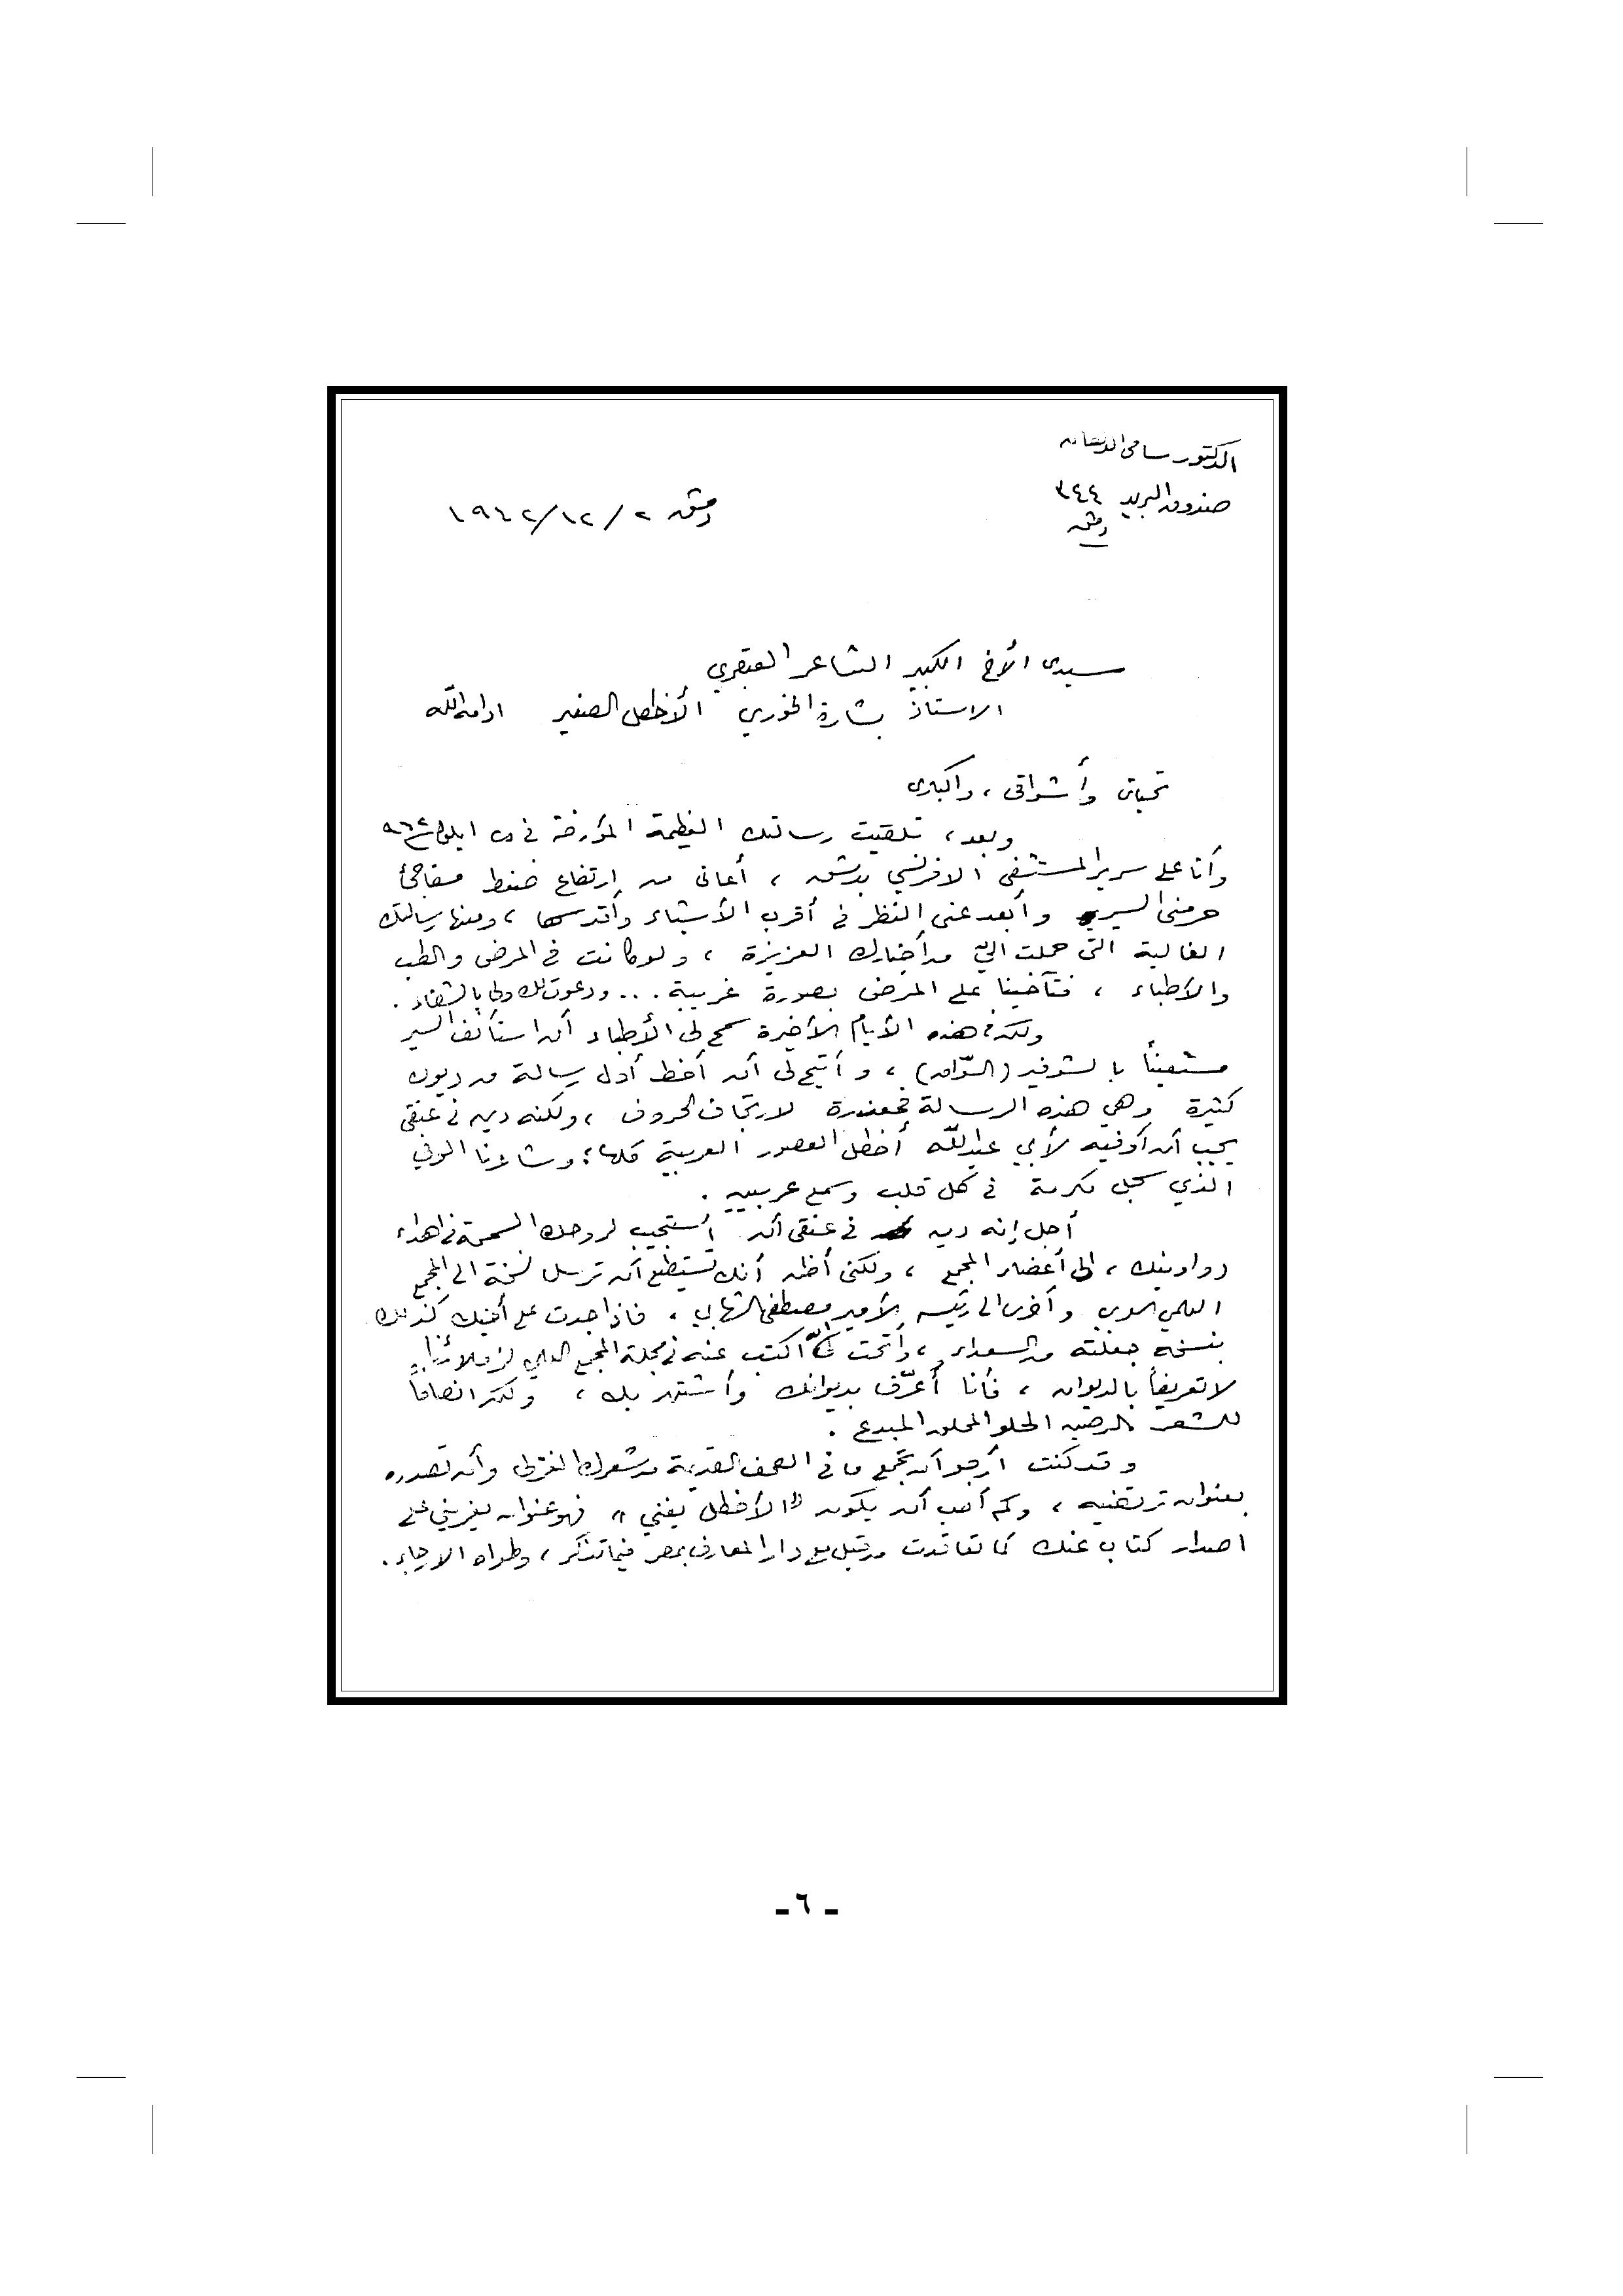 الدكتور سامي الدهان
صندوق البريد ٣٤٤
دمشق
دمشق ٢ / ١٢ / ١٩٤٢
سيدي الأخ الكبير الشاعر العبقري
الاستاذ بشارة الخوري الأخطل الصغير ادامه الله
تحياتي وأشواقي ، واكباري
وبعد ، تلقيت رسالتك العظيمة المؤرخة في ايلول
وأنا على سرير المستشفى الافرنسي بدمشق ، أعاني من إرتفاع ضغط مفاجئ
حرمني السير وأبعد عني النظر في أقرب الأشياء وأقدسها ، ومنها رسالتك
الغالية التي حملت اليّ من أخبارك العزيزة ، ولو كانت في المرض والطب
والأطباء ، فتآخينا على المرض بصورة غريبة ... ودعوت لك ولي بالشفاء .
ولكن في هذه الأيام الأخيرة سمح لي الأطباء أن استأنف السير
مستعيناً بالشوفير (السوّاق) ، وأتيح لي أن أخط أول رسالة من ديون
كثيرة وهي هذه الرسالة فمعذرة لارتجاف الحروف ، ولكنه دين في عنقي
يجب أن أوفيه لأبي عبد الله أخطل العصور العربية كلها ؛ وشاعرنا الوفي
الذي سجل مكرمة في كل قلب وسمع عربيين .
أجل إنه دين في عنقي أن أستجيب لروحك السمحة في اهداء
دواوينك ، الى أعضاء المجمع ، ولكني أظن أنك تستطيع أن ترسل نسخة الى المجمع
العلمي العربي وأخرى الى رئيسه الأمير مصطفى الشهابي ، فاذا جدت على أخيك كذلك
بنسخة جعلته من السعداء ، وأتحت لي أن أكتب عنه في مجلة المجمع العلمي
لا تعريفاً بالديوان ، فأنا أعرّف بديوانك وأشتهر بك ، ولكن انصافاً
للشعر الرصين الحلو المحلق المبدع .
وقد كنت أرجو أن تجمع ما في الصحف القديمة من شعرك الغزلي وأن تصدره
بعنوان ترتضيه ، وكم أحب أن يكون «الأخطل يغني» فهو عنوان يغريني على
اصدار كتاب عنك كما تعاقدت من قبل مع دار المعارف بمصر فيما تذكر ، وطواه الارجاء .
ـ ٦ ـ